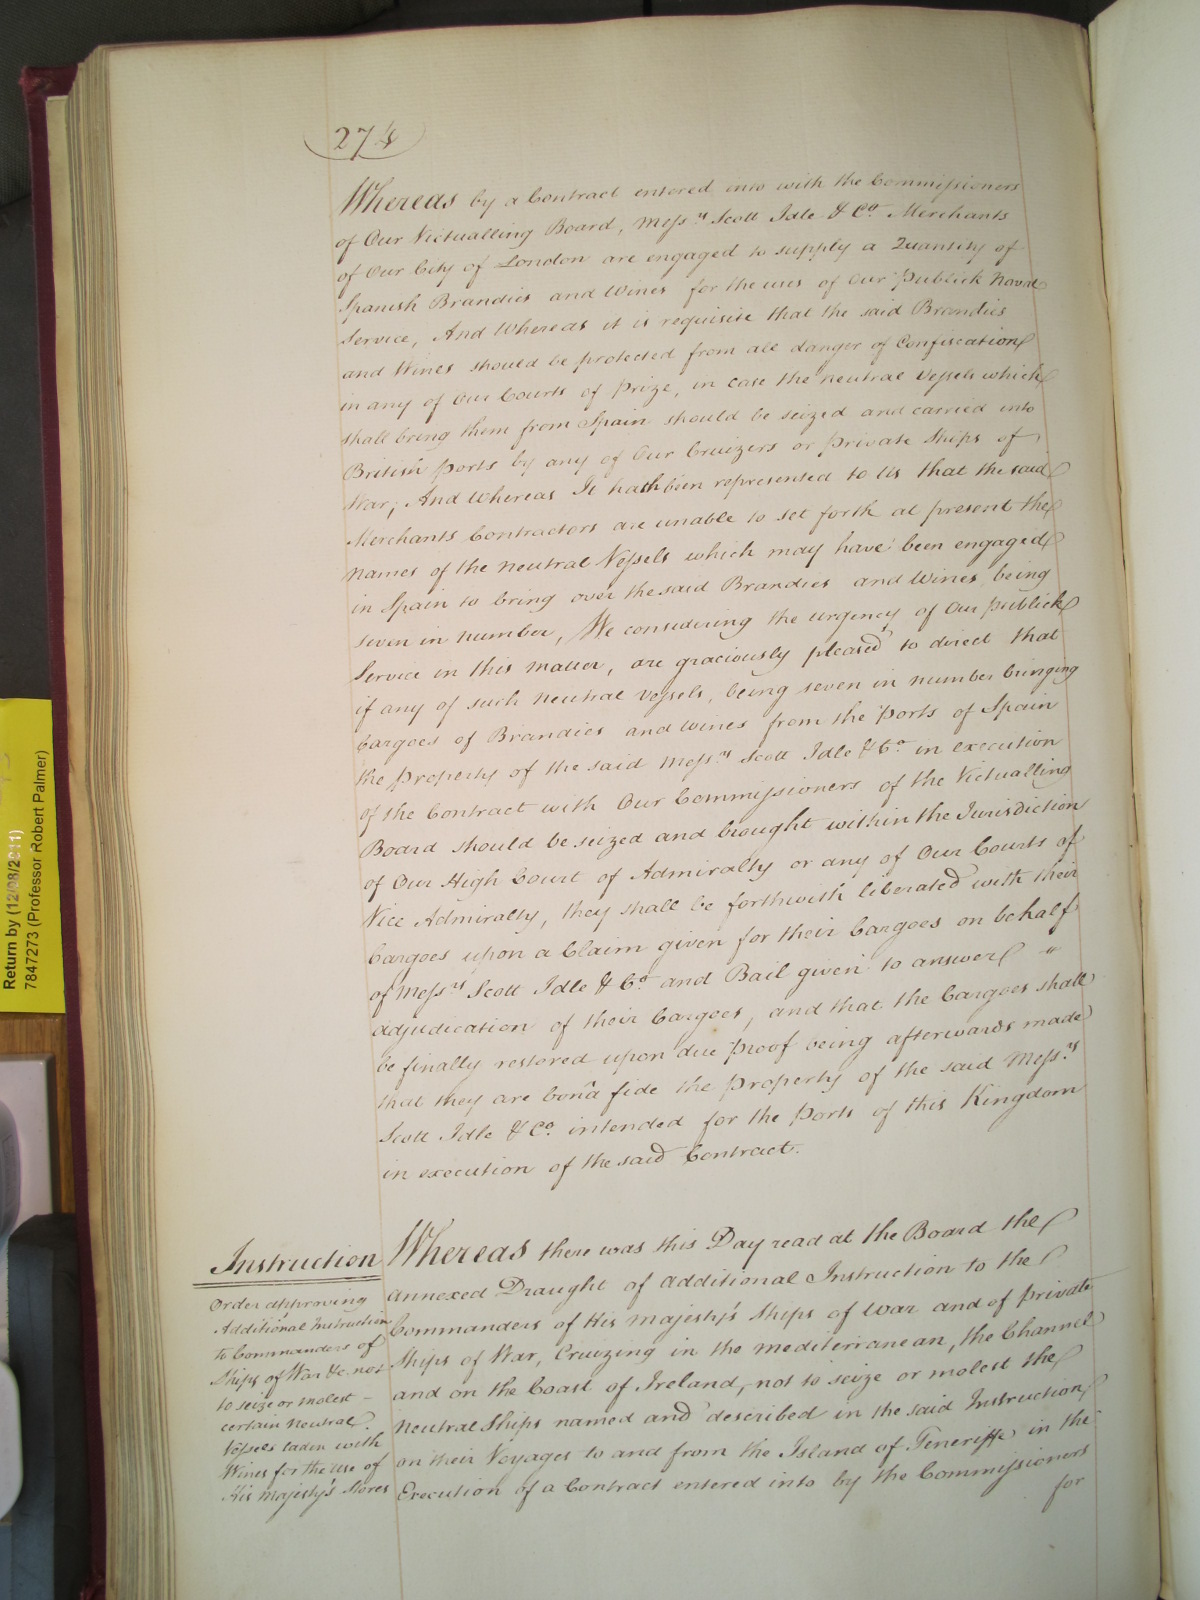 274
Whereas by a Contract entered into with the Commissioners
of Our Victualling Board, Messrs Scott Idle & Co. Merchants
of Our City of London are engaged to supply a Quantity of
Spanish Brandies and Wines for the uses of Our Publick Naval
Service, And Whereas it is requisite that the said Brandies
and Wines should be protected from all danger of Confiscation
in any of Our Courts of Prize, in case the neutral Vessels which
shall bring them from Spain should be seized and carried into
British Ports by any of Our Cruizers or private Ships of
War; And Whereas It hath been represented to Us that the said
Merchants Contractors are unable to set forth at present the
names of the neutral Vessels which may have been engaged
in Spain to bring over the said Brandies and Wines being
seven in number, We considering the urgency of Our publick
Service in this matter, are graciously pleased to direct that
if any of such neutral Vessels, being seven in number bringing
Cargoes of Brandies and Wines from the Ports of Spain
the Property of the said Messrs Scott Idle & Co. in execution
of the Contract with Our Commissioners of the Victualling
Board should be seized and brought within the Jurisdiction
of Our High Court of Admiralty or any of Our Courts of
Vice Admiralty, they shall be forthwith liberated with their
Cargoes upon a Claim given for their Cargoes on behalf
of Messrs Scott Idle & Co. and Bail given to answer "
adjudication of their Cargoes, and that the Cargoes shall
be finally restored upon due Proof being afterwards made
that they are bonâ fide the Property of the said Messrs
Scott Idle & Co. intended for the Ports of this Kingdom
in execution of the said Contract.
Instruction
Order approving
Additional Instruction
to Commanders of
Ships of War &c. not
to seize or molest –
certain Neutral
Vessels laden with
Wines for the use of
His Majesty's Stores
Whereas there was this Day read at the Board the
annexed Draught of additional Instruction to the
Commanders of His Majesty's Ships of War and of private
Ships of War, Cruizing in the Mediterranean, the Channel
and on the Coast of Ireland, not to seize or molest the
Neutral Ships named and described in the said Instruction,
on their Voyages to and from the Island of Teneriffe in the
Execution of a Contract entered into by the Commissioners
for
Return by (12/08/2011)
7847273 (Professor Robert Palmer)